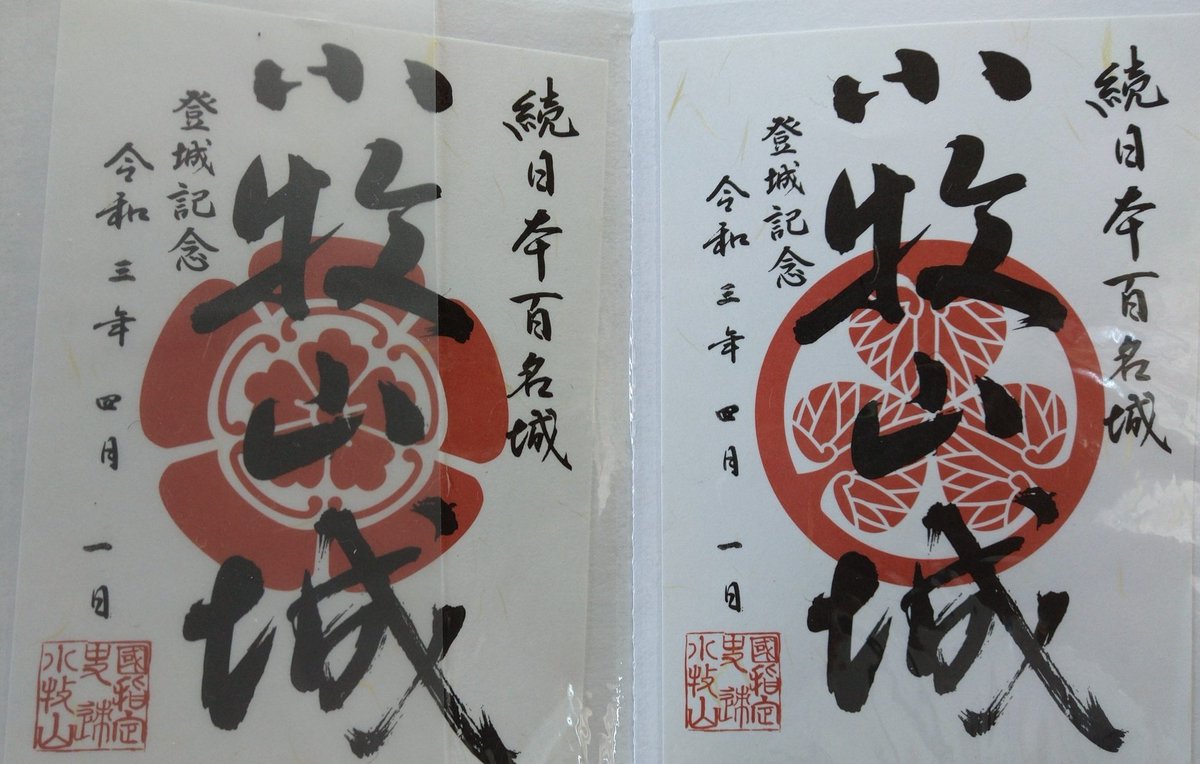 続日本百名城
小牧山城
登城記念
令和三年四月一日
國指定
史跡
小牧山
続日本百名城
小牧山城
登城記念
令和三年四月一日
國指定
史跡
小牧山